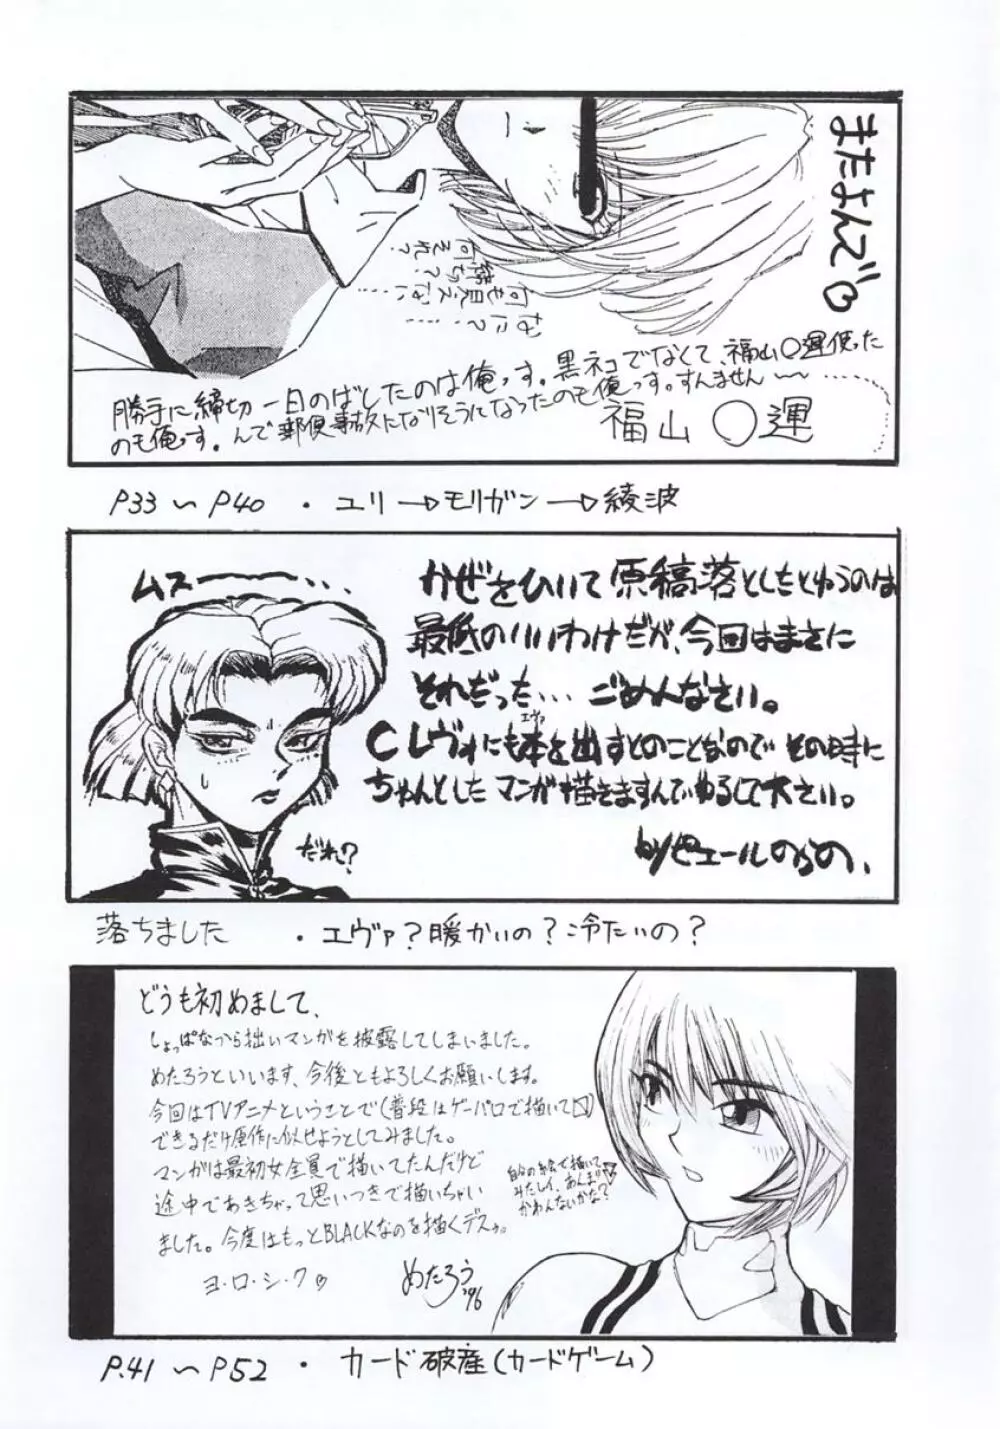 またよんで♡
何それ？
締切？
何も見えない……
なに？……
勝手に締切一日のばしたのは俺っす。黒ネコでなくて、福山〇運使った
のも俺っす。んで郵便事故になりそうになったのも俺っす。すんません〜〜
福山〇運
P33〜P40 ・ユリ→モリガン→綾波
ムスーー・・
かぜをひいて原稿落としたとゆうのは
最低のいいわけだが、今回はまさに
それだった… ごめんなさい。
Cレヴォにも本を出すとのことなのでその時に
エヴァ
ちゃんとしたマンガ描きますんでゆるして下さい。
だれ？
落ちました ・エヴァ？暖かいの？冷たいの？
どうも初めまして、
しょっぱなから拙いマンガを披露してしまいました。
めたろうといいます、今後ともよろしくお願いします。
今回はTVアニメということで(普段はゲーパロで描いて)
できるだけ原作に似せようとしてみました。
マンガは最初女全員で描いてたんだけど
途中であきちゃって思いつきで描いちゃい
ました。今度はもっとBLACKなのを描くデスゥ。
ヨ・ロ・シ・ク♡
めたろう '96
自分の絵で描いて
みたレイ、あんまり
かわんないかな？
P.41〜P52 ・カード破産(カードゲーム)